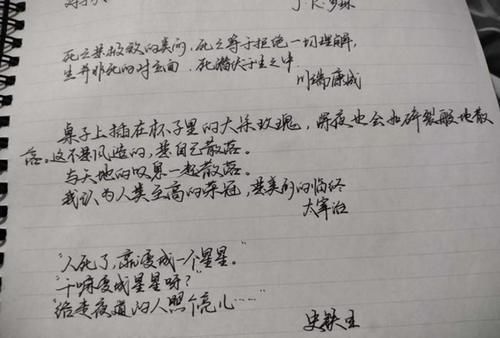 J·K·罗琳
死是极致的美丽,死亡等于拒绝一切理解,
生并非死的对立面,死潜伏于生之中.
川端康成
桌子上插在杯子里的大朵玫瑰,深夜也会如碎裂般地散
落。这不是风造的,是自己散落。
与天地的叹息一起散落。
我认为人类至高的荣冠,是美丽的临终
太宰治
"人死了,就变成一个星星。"
"干嘛变成星星呀?"
"给走夜道的人照个亮儿……"
史铁生